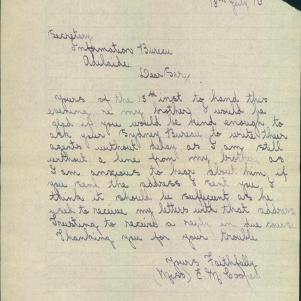 18th July 16
Secretary
Information Bureau
Adelaide
Dear Sir,
Yours of the 15th inst to hand this
evening re my brother I would be
glad if you would be kind enough to
ask your Sydney Bureau to write their
agents without delay as I am still
without a line from my brother as
I am anxious to hear about him, if
you send the address I sent you, I
think it should be sufficient as he
used to receive my letters with that address
Trusting to receive a reply in due course
Thanking you for your trouble
Yours Faithfully
(Miss) E M Cooper